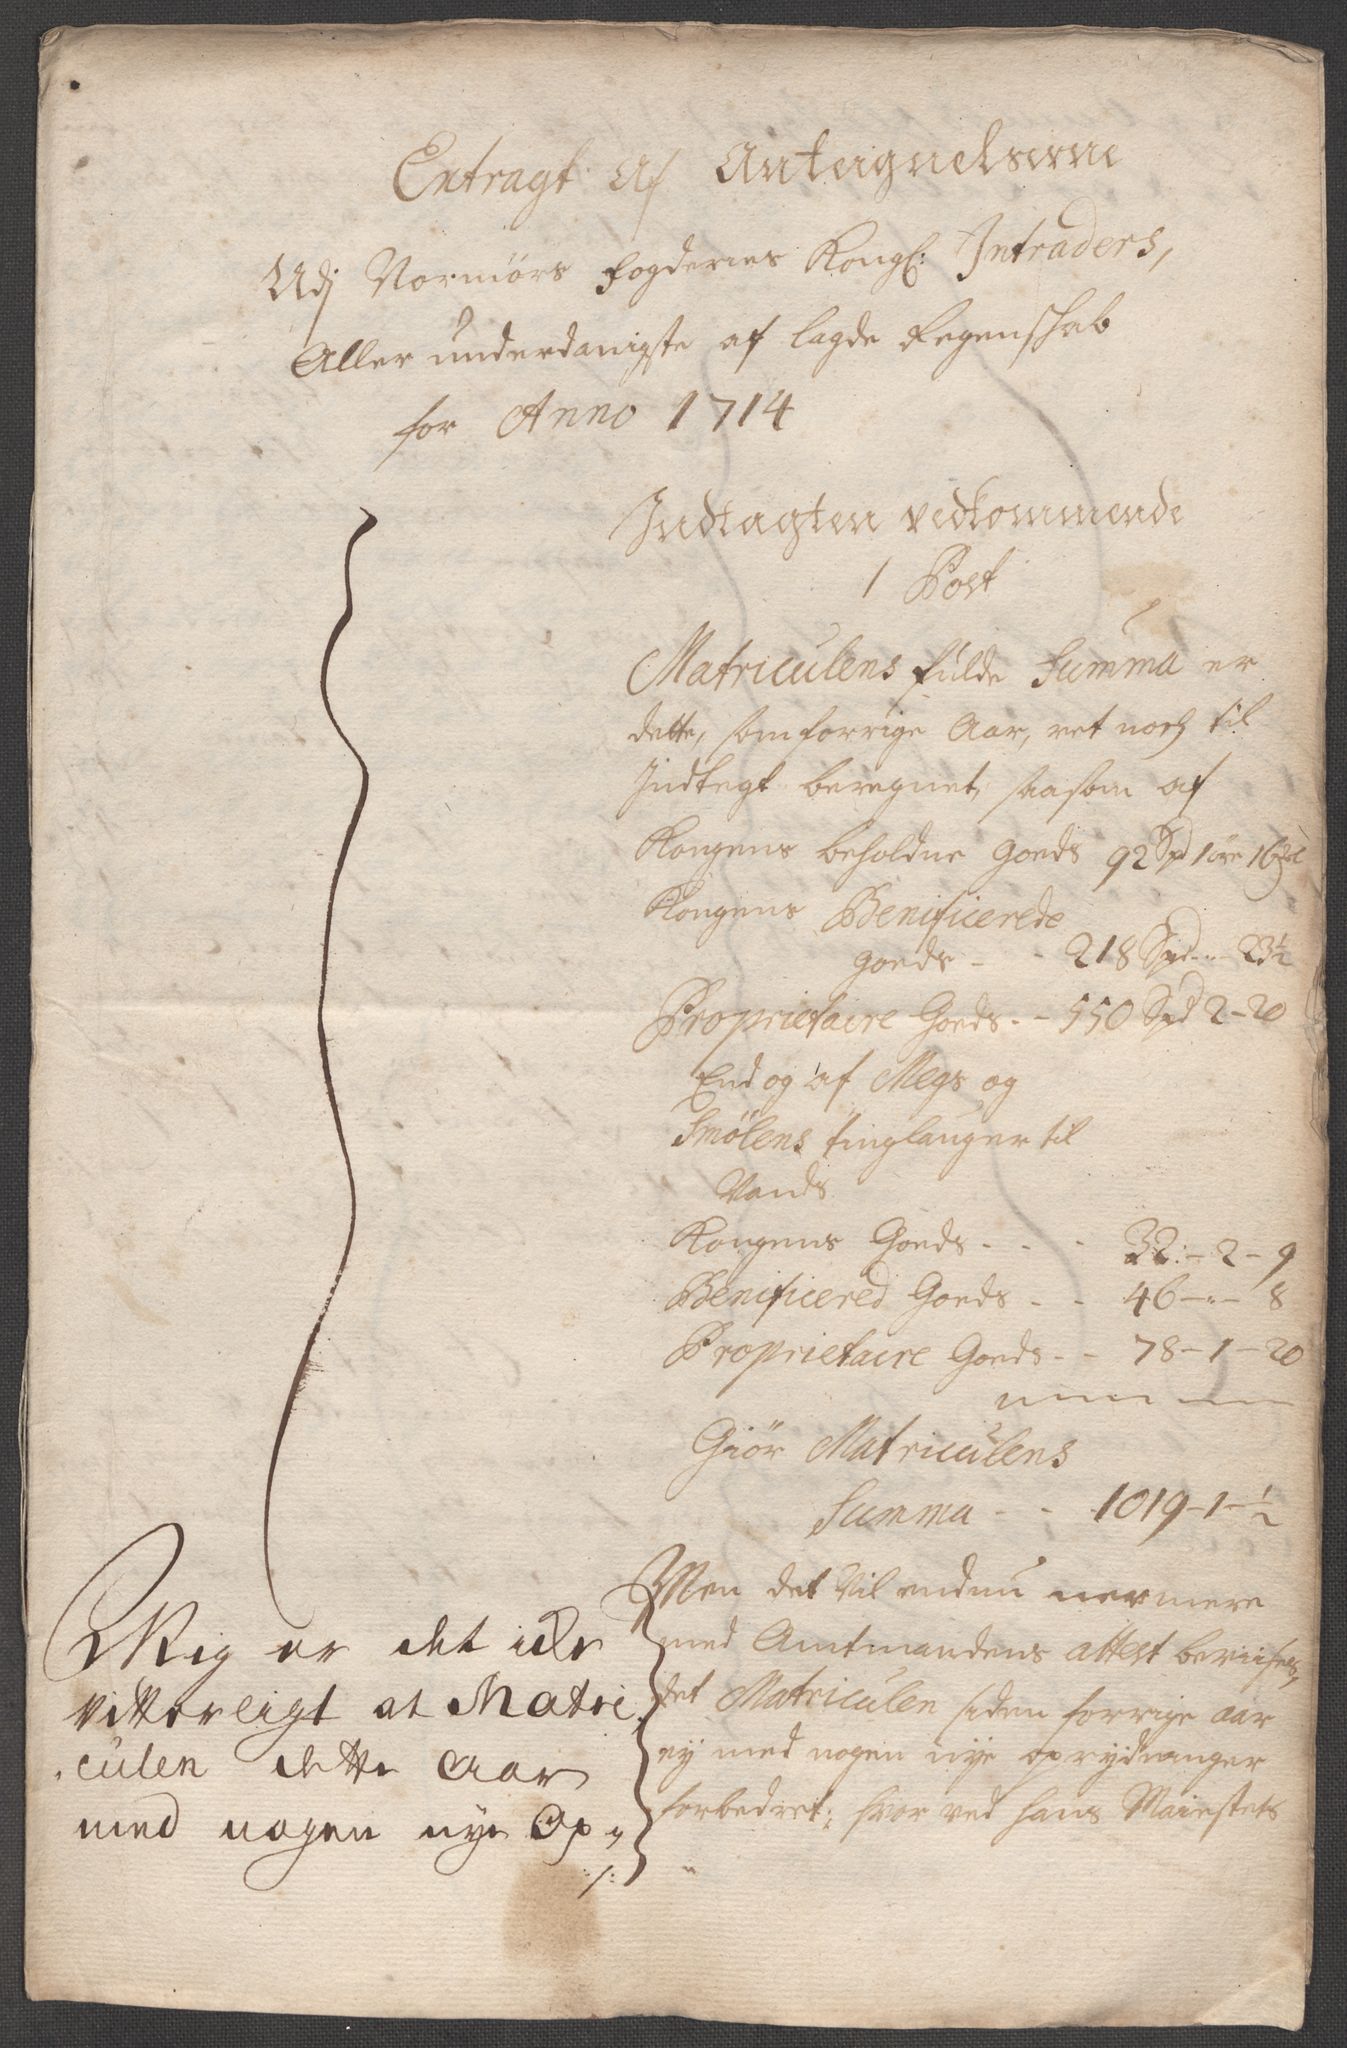 Extragt Af Anteignelserne
Udj Normørs fogderies Kongl: Intraders,
Aller underdanigste af lagde Regenschab
for Anno 1714
Indtagten vedkommende
1 Post
Matriculens fulde Summa er
dette, som forrige Aar, ret noch til
Indtegt beregnet, saasom af
Kongens beholdne Goeds 92 Spd 1 öre 16
Kongens Benificerede
goeds - - 218 Spd -"- 23½
Proprietaire Goeds - - 550 Spd 2 - 20
End og af Megs og
Smölens tinglauger til
Vands
Kongens Goeds - - - 32: - 2 - 9
Benificered Goeds - - 46 -"- 8
Proprietaire Goeds - - 78 - 1 - 20
Giör Matriculens
Summa - - 1019 - 1 - ½
Men det vil endnu nermere
med Amtmandens attest beviises,
det Matriculen siden forrige aar
ey med nogen nye oprydninger
forbedret; hvor ved hans Maiestets
Mig er det icke
vitterligt at Matri
culen dette Aar
med nogen nye Op-
./.